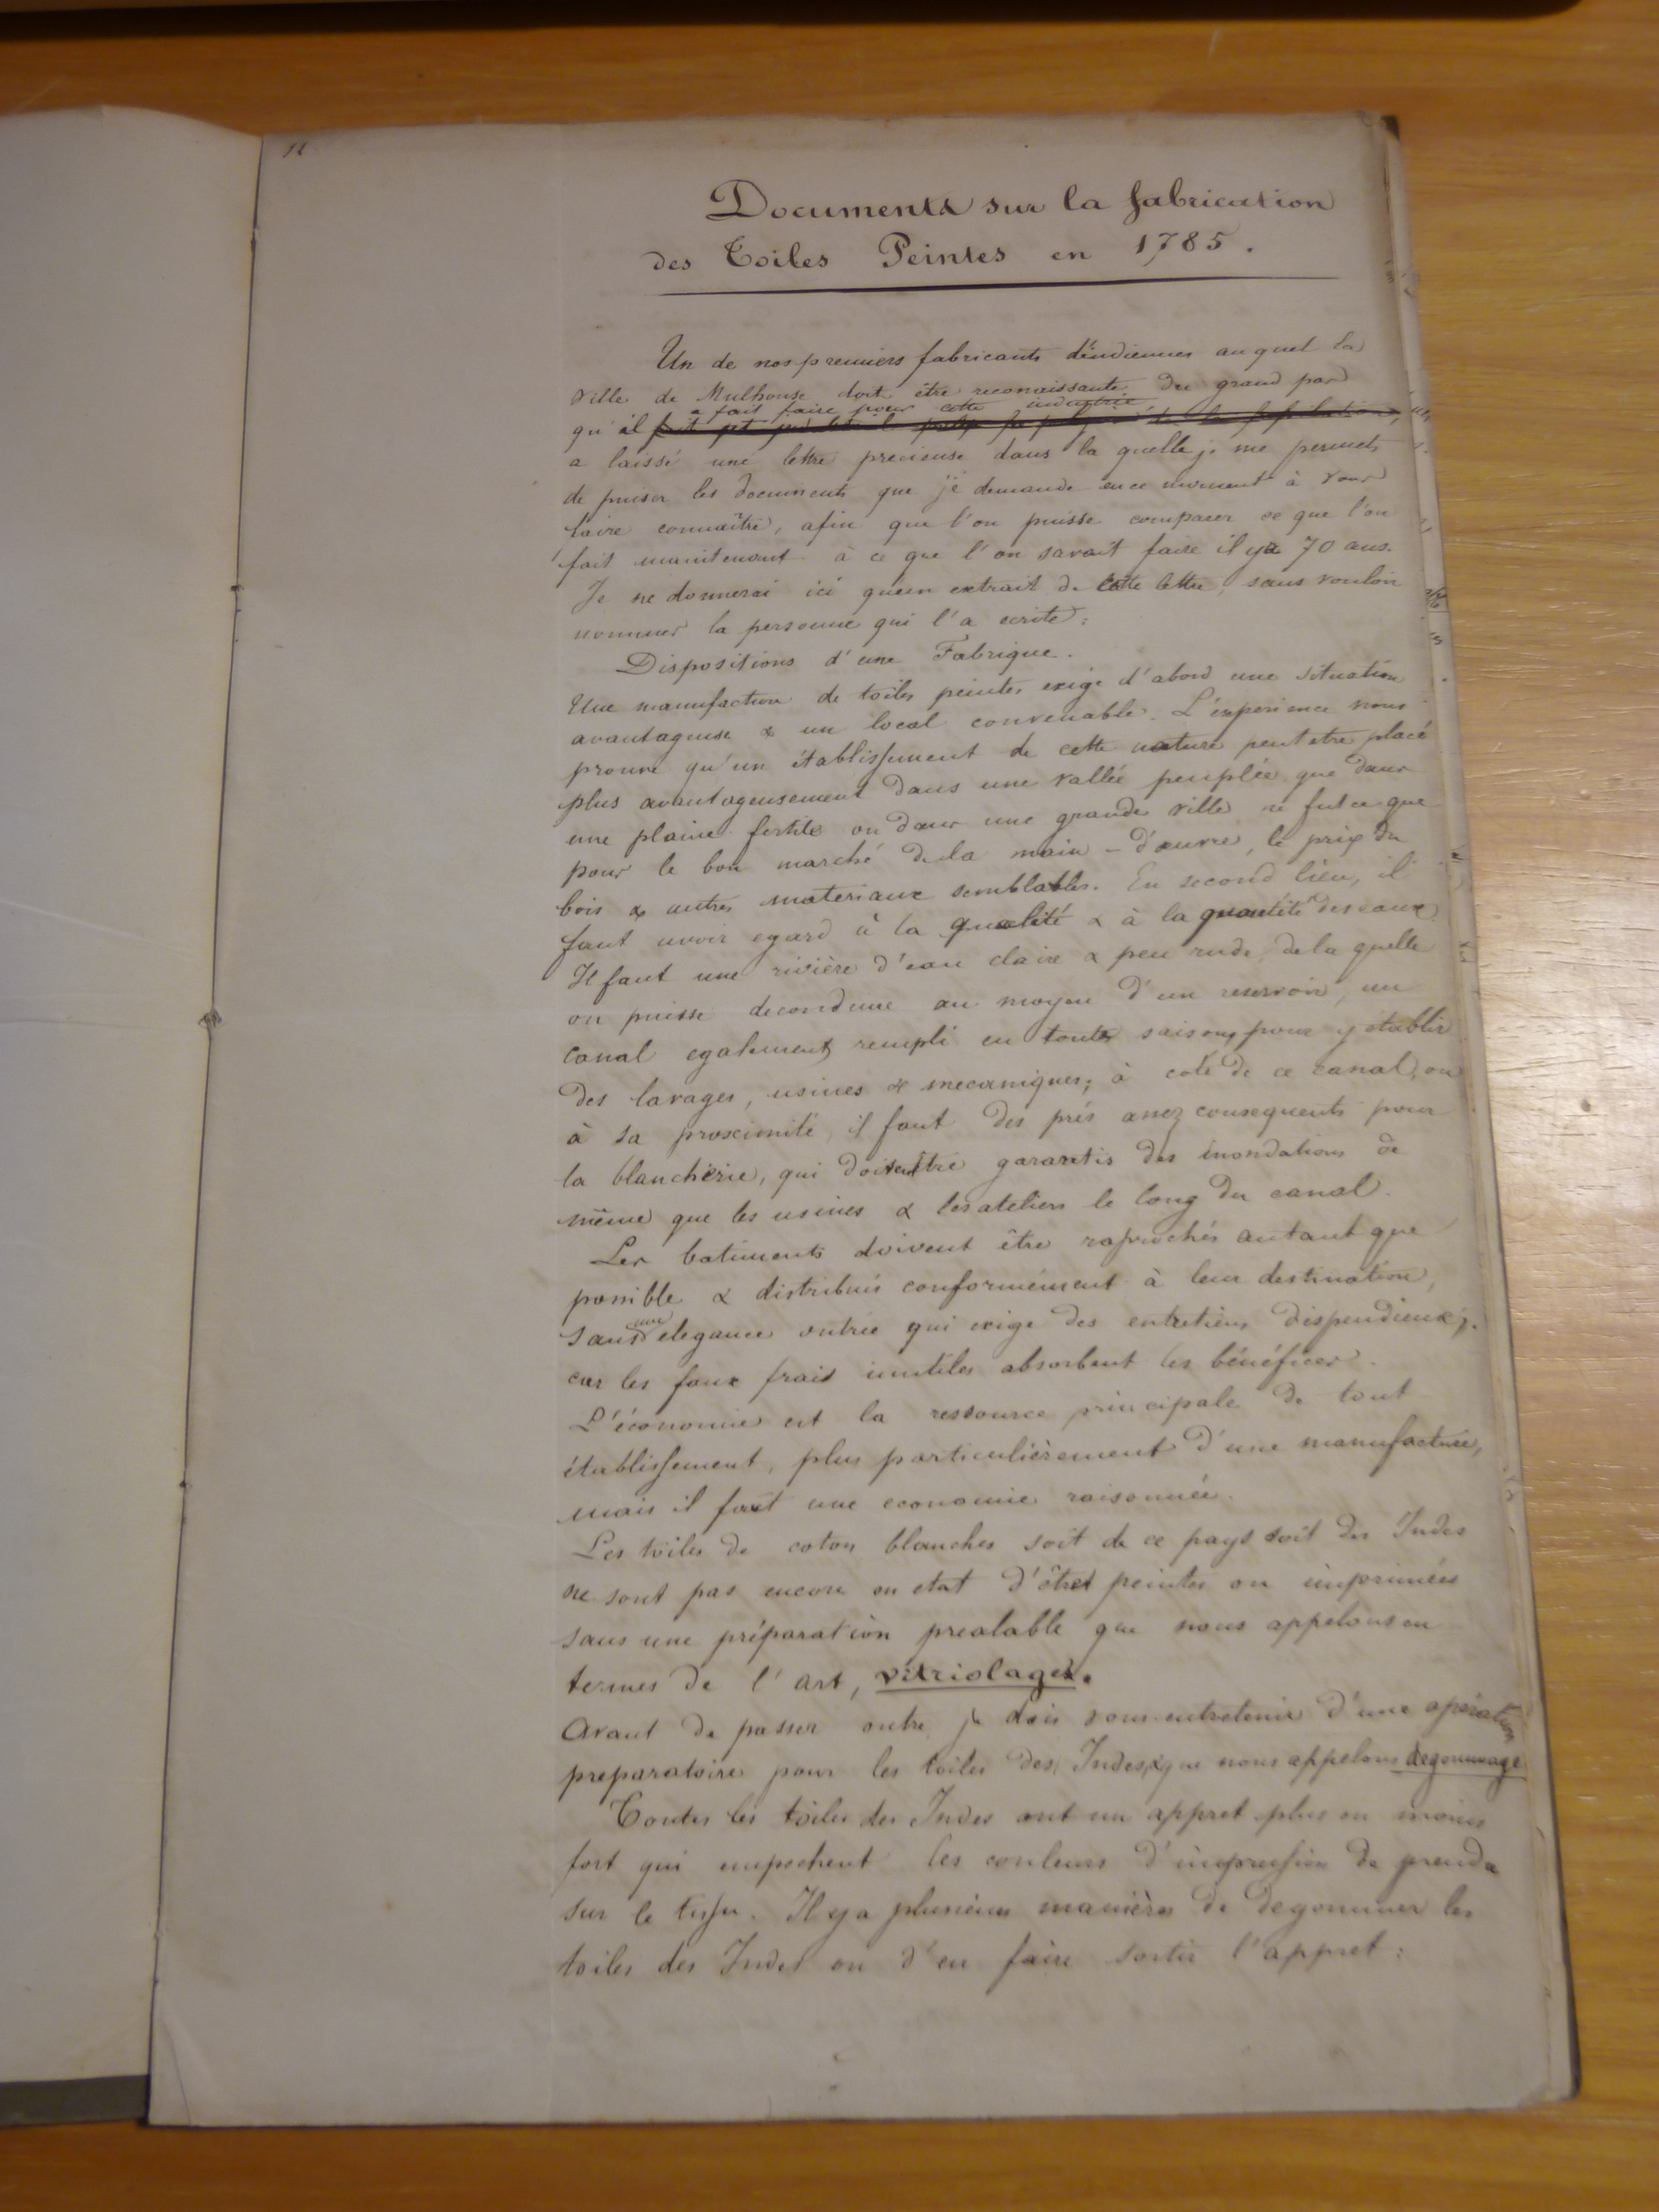 11
Documents sur la fabrication
des Toiles Peintes en 1785.
Un de nos premiers fabricants d'indiennes auquel la
ville de Mulhouse doit être reconnaissante du grand pas
a fait faire pour cette industrie
qu'il
a laissé une lettre precieuse dans la quelle je me permets
de puiser les documents que je demande en ce moment à vous
faire connaître, afin que l'on puisse comparer ce que l'on
fait maintenant à ce que l'on savait faire il y a 70 ans.
Je ne donnerai ici qu'un extrait de cette lettre, sans vouloir
nommer la personne qui l'a ecrite:
Dispositions d'une Fabrique.
Une manufacture de toiles peintes exige d'abord une situation
avantageuse & un local convenable. L'experience nous
prouve qu'un établissement de cette nature peut etre placé
plus avantageusement dans une vallée peuplée que dans
une plaine fertile ou dans une grande ville ne fut ce que
pour le bon marché de la main-d'œuvre, le prix du
bois & autres materiaux semblables. En second lieu, il
faut avoir egard à la qualité & à la quantité des eaux.
Il faut une rivière d'eau claire & peu rude, de la quelle
on puisse deconduire au moyen d'un reservoir, un
canal egalement rempli en toutes saisons, pour y établir
des lavages, usines & mecaniques; à coté de ce canal, ou
à sa proximité, il faut des prés assez consequents pour
la blancherie, qui doivent être garantis des inondations de
même que les usines & les ateliers le long du canal.
Les batiments doivent être raprochés autant que
possible & distribués conformément à leur destination,
sans une elegance outrée qui exige des entretiens dispendieux;
car les faux frais inutiles absorbent les bénéfices.
L'économie est la ressource principale de tout
établissement, plus particulièrement d'une manufacture,
mais il faut une economie raisonnée.
Les toiles de coton blanches soit de ce pays soit des Indes
ne sont pas encore en etat d'être peintes ou imprimées
sans une préparation prealable que nous appelons en
termes de l'art, vitriolage.
Avant de passer outre, je dois vous entretenir d'une opération
preparatoire pour les toiles des Indes, que nous appelons degommage
Toutes les toiles des Indes ont un appret plus ou moins
fort qui empechent les couleurs d'impression de prendre
sur le tissu. Il y a plusieurs manières de degommer les
toiles des Indes ou d'en faire sortir l'appret: